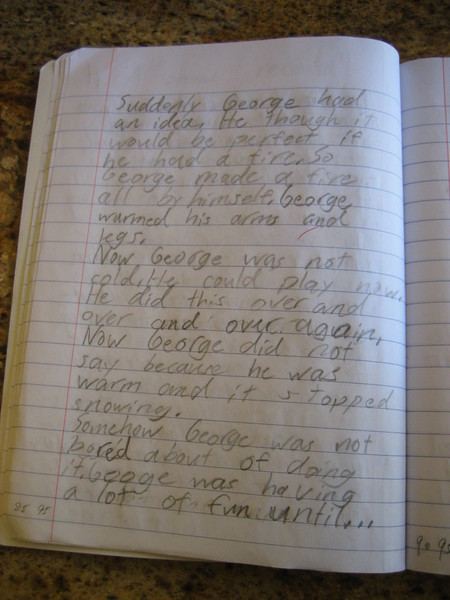 Suddenly George had
an idea, He though it
would be perfect if
he had a fire. So
George made a fire
all by himself. George
warmed his arms and
legs.
Now George was not
cold. He could play now.
He did this over and
over and over again.
Now George did not
say because he was
warm and it stopped
snowing.
Somehow George was not
bored about of doing
it. Geoge was having
a lot of fun until...
95 95
90 95